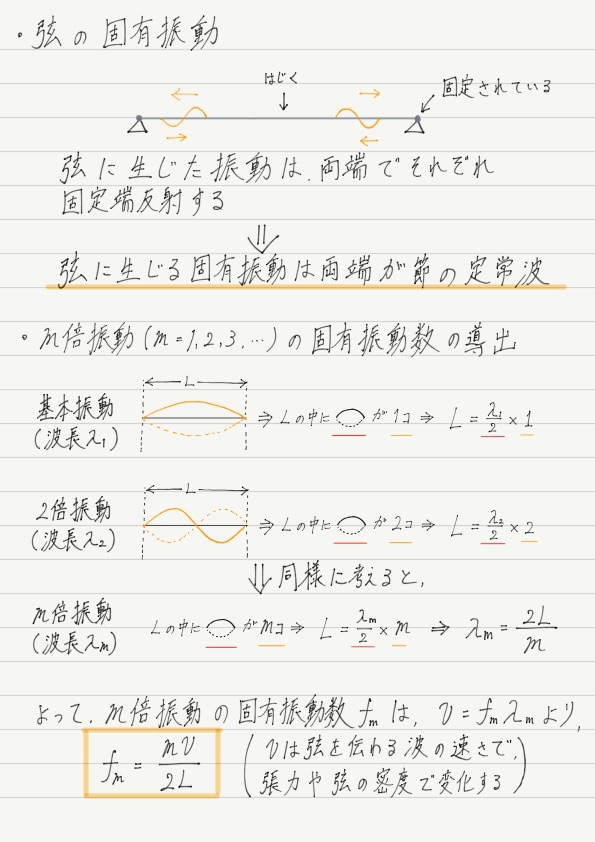 ・弦の固有振動
はじく
固定されている
弦に生じた振動は、両端でそれぞれ
固定端反射する
⇓
弦に生じる固有振動は両端が節の定常波
・m倍振動(m=1,2,3,…)の固有振動数の導出
L
基本振動
(波長λ₁)
⇒ Lの中に が1コ ⇒ L = λ₁/2 × 1
L
2倍振動
(波長λ₂)
⇒ Lの中に が2コ ⇒ L = λ₂/2 × 2
⇓ 同様に考えると,
m倍振動
(波長λm)
Lの中に がmコ ⇒ L = λm/2 × m ⇒ λm = 2L/m
よって、m倍振動の固有振動数fmは, v=fmλmより,
fm = mv/2L
(vは弦を伝わる波の速さで,
張力や弦の密度で変化する)